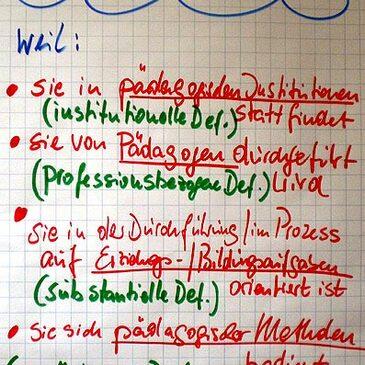 Weil:
• sie in pädagogischen Institutionen
(institutionelle Def.) stattfindet
• sie von Pädagogen durchgeführt
(professionsbezogene Def.) wird
• sie in der Durchführung / im Prozess
auf Erziehungs-/Bildungsaufgaben
(substantielle Def.) orientiert ist
• sie sich pädagogischer Methoden
bedient